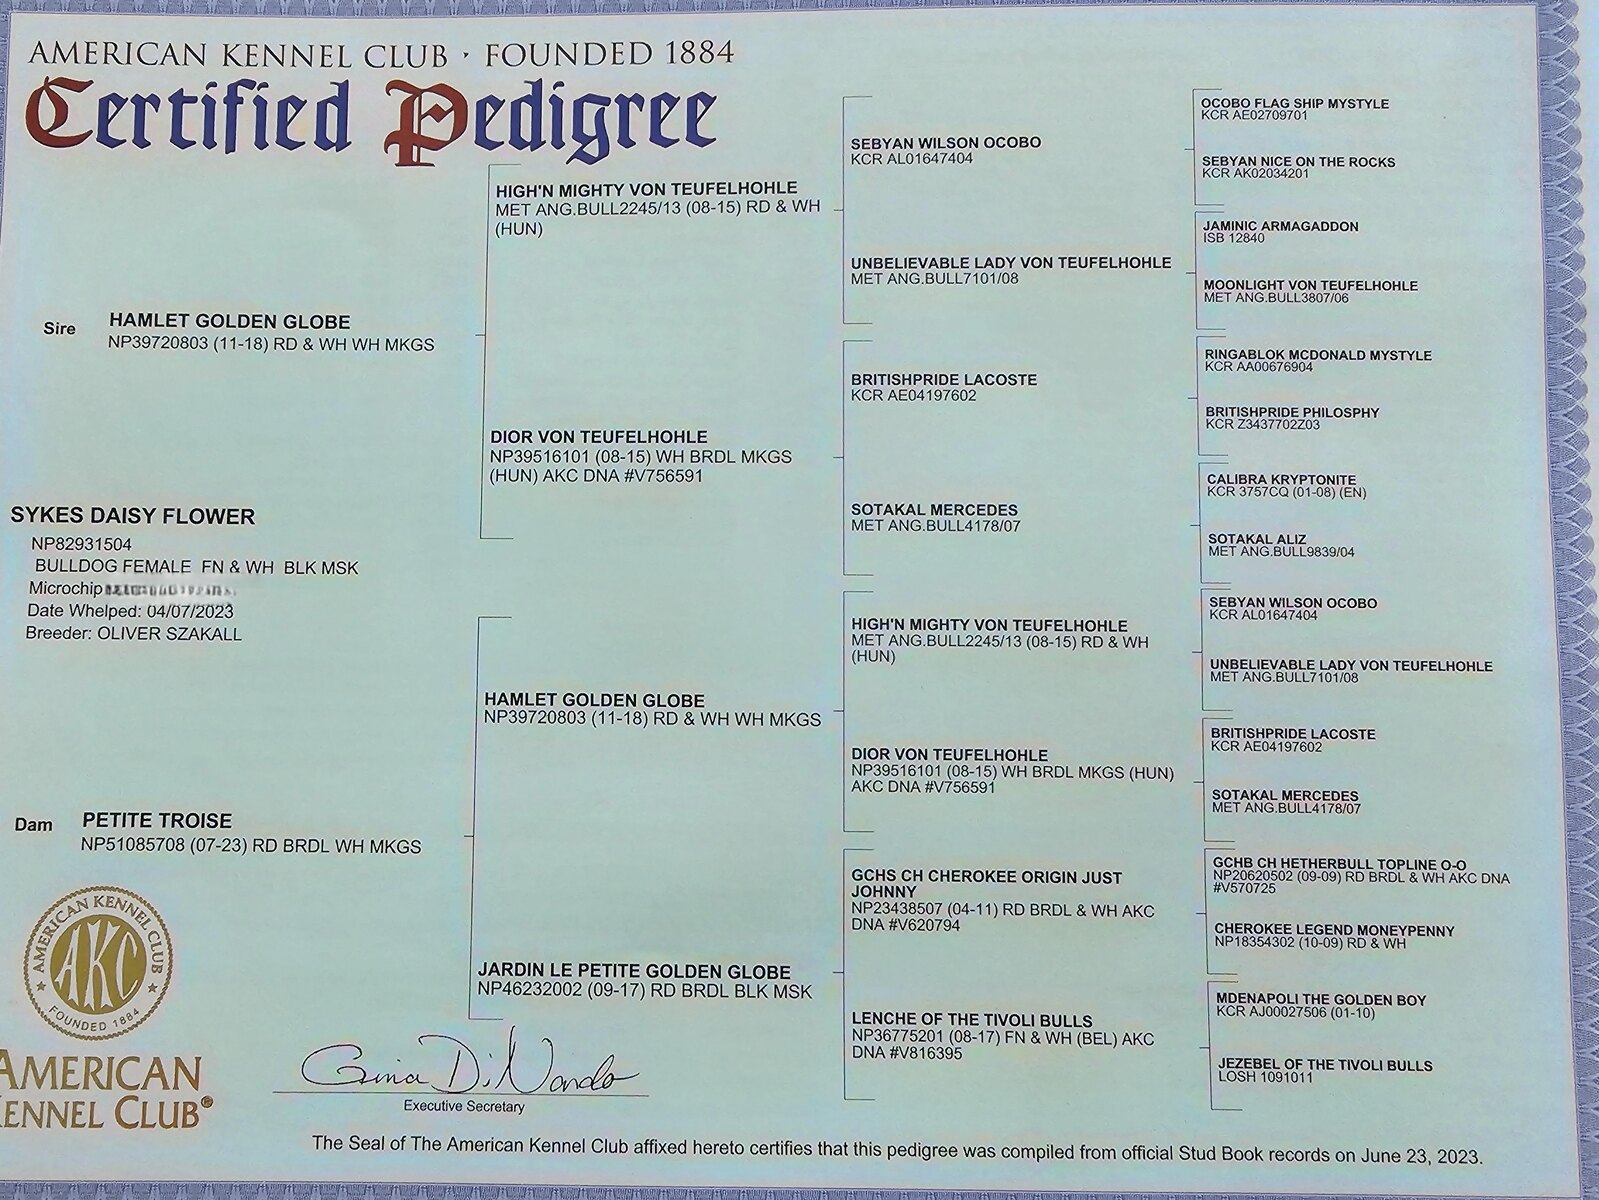 AMERICAN KENNEL CLUB · FOUNDED 1884
Certified Pedigree
Sire
HAMLET GOLDEN GLOBE
NP39720803 (11-18) RD & WH WH MKGS
SYKES DAISY FLOWER
NP82931504
BULLDOG FEMALE FN & WH BLK MSK
Microchip
Date Whelped: 04/07/2023
Breeder: OLIVER SZAKALL
Dam
PETITE TROISE
NP51085708 (07-23) RD BRDL WH MKGS
HIGH'N MIGHTY VON TEUFELHOHLE
MET ANG.BULL2245/13 (08-15) RD & WH
(HUN)
DIOR VON TEUFELHOHLE
NP39516101 (08-15) WH BRDL MKGS
(HUN) AKC DNA #V756591
HAMLET GOLDEN GLOBE
NP39720803 (11-18) RD & WH WH MKGS
JARDIN LE PETITE GOLDEN GLOBE
NP46232002 (09-17) RD BRDL BLK MSK
SEBYAN WILSON OCOBO
KCR AL01647404
UNBELIEVABLE LADY VON TEUFELHOHLE
MET ANG.BULL7101/08
BRITISHPRIDE LACOSTE
KCR AE04197602
SOTAKAL MERCEDES
MET ANG.BULL4178/07
HIGH'N MIGHTY VON TEUFELHOHLE
MET ANG.BULL2245/13 (08-15) RD & WH
(HUN)
DIOR VON TEUFELHOHLE
NP39516101 (08-15) WH BRDL MKGS (HUN)
AKC DNA #V756591
GCHS CH CHEROKEE ORIGIN JUST
JOHNNY
NP23438507 (04-11) RD BRDL & WH AKC
DNA #V620794
LENCHE OF THE TIVOLI BULLS
NP36775201 (08-17) FN & WH (BEL) AKC
DNA #V816395
OCOBO FLAG SHIP MYSTYLE
KCR AE02709701
SEBYAN NICE ON THE ROCKS
KCR AK02034201
JAMINIC ARMAGADDON
ISB 12840
MOONLIGHT VON TEUFELHOHLE
MET ANG.BULL3807/06
RINGABLOK MCDONALD MYSTYLE
KCR AA00676904
BRITISHPRIDE PHILOSPHY
KCR Z3437702Z03
CALIBRA KRYPTONITE
KCR 3757CQ (01-08) (EN)
SOTAKAL ALIZ
MET ANG.BULL9839/04
SEBYAN WILSON OCOBO
KCR AL01647404
UNBELIEVABLE LADY VON TEUFELHOHLE
MET ANG.BULL7101/08
BRITISHPRIDE LACOSTE
KCR AE04197602
SOTAKAL MERCEDES
MET ANG.BULL4178/07
GCHB CH HETHERBULL TOPLINE O-O
NP20620502 (09-09) RD BRDL & WH AKC DNA
#V570725
CHEROKEE LEGEND MONEYPENNY
NP18354302 (10-09) RD & WH
MDENAPOLI THE GOLDEN BOY
KCR AJ00027506 (01-10)
JEZEBEL OF THE TIVOLI BULLS
LOSH 1091011
AMERICAN KENNEL CLUB
AKC
FOUNDED 1884
AMERICAN
KENNEL CLUB®
Gina DiNardo
Executive Secretary
The Seal of The American Kennel Club affixed hereto certifies that this pedigree was compiled from official Stud Book records on June 23, 2023.